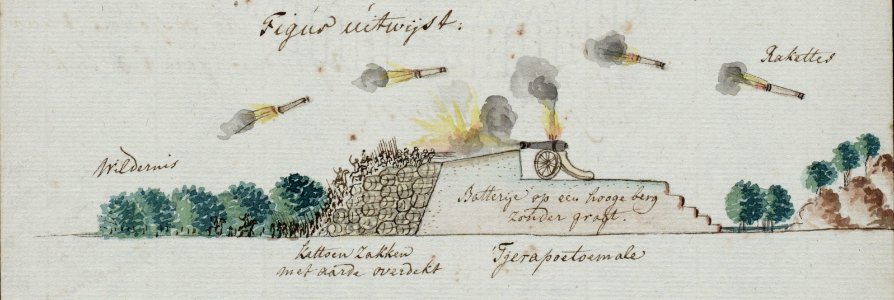 Figus uitwijst:
Rakettes
Wildernis
Batterije op een hooge berg
zonder graft.
Kattoen Zakken
met aarde overdekt
Tjerapoetoemale